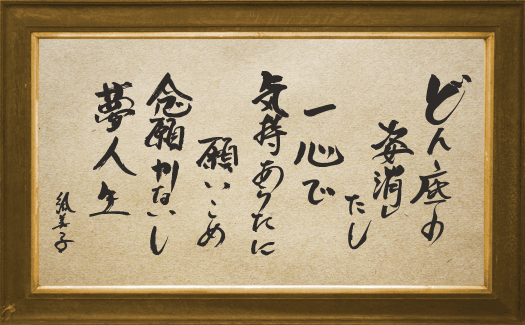 どん底の
姿消し
たし
一心で
気持あらたに
願いこめ
念願かないし
夢人生